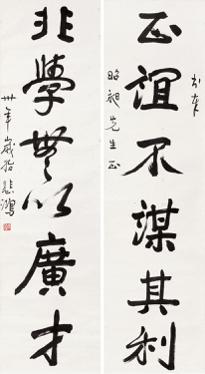 正誼不謀其利
昭昶先生正
非學無以廣才
卅年歲始 悲鴻